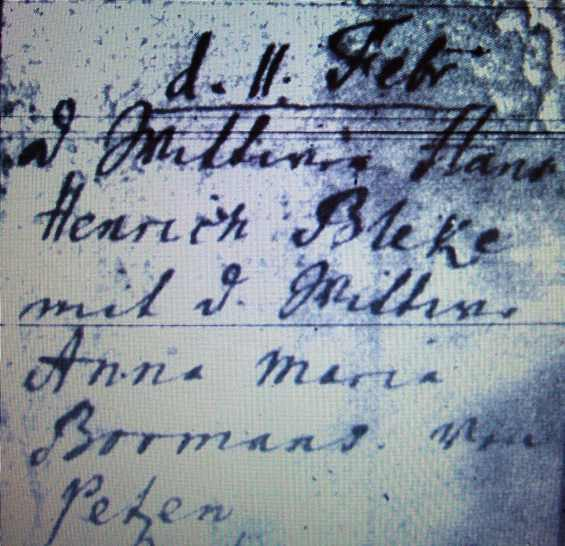 d. 11. Febr
d Wittwer Hans
Henrich Bleke
mit d. Wittwe
Anna Maria
Bormans. von
Petzen